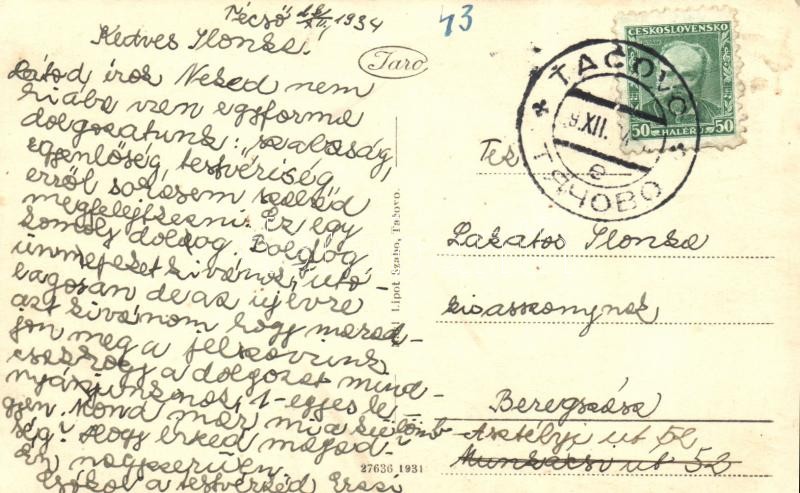 Técső 1934
43
Kedves Ilonka!
Látod írok Neked nem
hiába van egyforma
dolgozatunk: "szabaság,
egyenlőség, testvériség
erről sohasem szabad
megfelejtkezni. Ez egy
komoly dolog. Boldog
ünnepeket kivánok, utó-
lagosan de az új évre
azt kivánom hogy marad-
jon meg a
csakhogy a dolgozat mind-
nyájunknak 1-egyes le-
gyen. Mond már mi a külömb-
ség? Hogy érzed magad?
Én nagyszerűen.
Csókol a testvérkéd Erzsi
Taro
Lipot Szabo, Tačovo.
27636 1931
ČESKOSLOVENSKO
50 HALÉŘŮ 50
TAČOVO
XII.
e
ТЯЧОВО
Tek.
Lakatos Ilonka
kisasszonynak
Beregszász
Asztélyi ut 52
Munkácsi ut 52